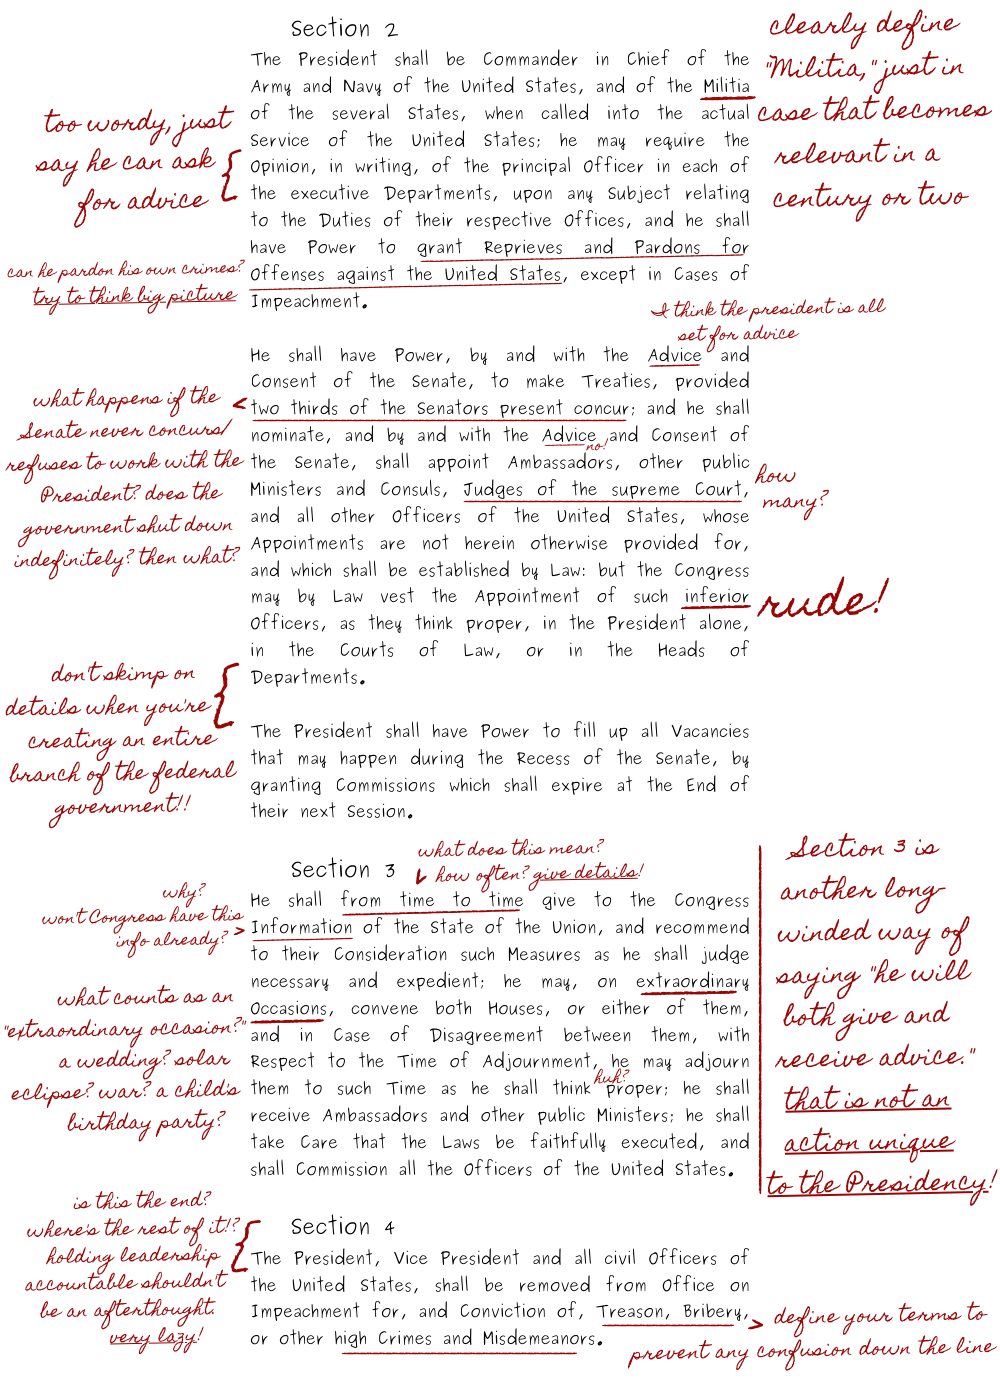 Section 2
The President shall be Commander in Chief of the
Army and Navy of the United States, and of the Militia
of the several States, when called into the actual
Service of the United States; he may require the
Opinion, in writing, of the principal Officer in each of
the executive Departments, upon any Subject relating
to the Duties of their respective Offices, and he shall
have Power to grant Reprieves and Pardons for
Offenses against the United States, except in Cases of
Impeachment.
clearly define
"Militia," just in
case that becomes
relevant in a
century or two
too wordy, just
say he can ask
for advice
can he pardon his own crimes?
try to think big picture
I think the president is all
set for advice
He shall have Power, by and with the Advice and
Consent of the Senate, to make Treaties, provided
two thirds of the Senators present concur; and he shall
nominate, and by and with the Advice and Consent of
no!
the Senate, shall appoint Ambassadors, other public
Ministers and Consuls, Judges of the supreme Court,
and all other Officers of the United States, whose
Appointments are not herein otherwise provided for,
and which shall be established by Law: but the Congress
may by Law vest the Appointment of such inferior
Officers, as they think proper, in the President alone,
in the Courts of Law, or in the Heads of
Departments.
what happens if the
Senate never concurs/
refuses to work with the
President? does the
government shut down
indefinitely? then what?
how
many?
rude!
don't skimp on
details when you're
creating an entire
branch of the federal
government!!
The President shall have Power to fill up all Vacancies
that may happen during the Recess of the Senate, by
granting Commissions which shall expire at the End of
their next Session.
Section 3
what does this mean?
how often? give details!
He shall from time to time give to the Congress
Information of the State of the Union, and recommend
to their Consideration such Measures as he shall judge
necessary and expedient; he may, on extraordinary
Occasions, convene both Houses, or either of them,
and in Case of Disagreement between them, with
Respect to the Time of Adjournment, he may adjourn
huh?
them to such Time as he shall think proper; he shall
receive Ambassadors and other public Ministers; he shall
take Care that the Laws be faithfully executed, and
shall Commission all the Officers of the United States.
why?
won't Congress have this
info already?
what counts as an
"extraordinary occasion?"
a wedding? solar
eclipse? war? a child's
birthday party?
Section 3 is
another long-
winded way of
saying "he will
both give and
receive advice."
that is not an
action unique
to the Presidency!
is this the end?
where's the rest of it!?
holding leadership
accountable shouldn't
be an afterthought.
very lazy!
Section 4
The President, Vice President and all civil Officers of
the United States, shall be removed from Office on
Impeachment for, and Conviction of, Treason, Bribery,
or other high Crimes and Misdemeanors.
define your terms to
prevent any confusion down the line